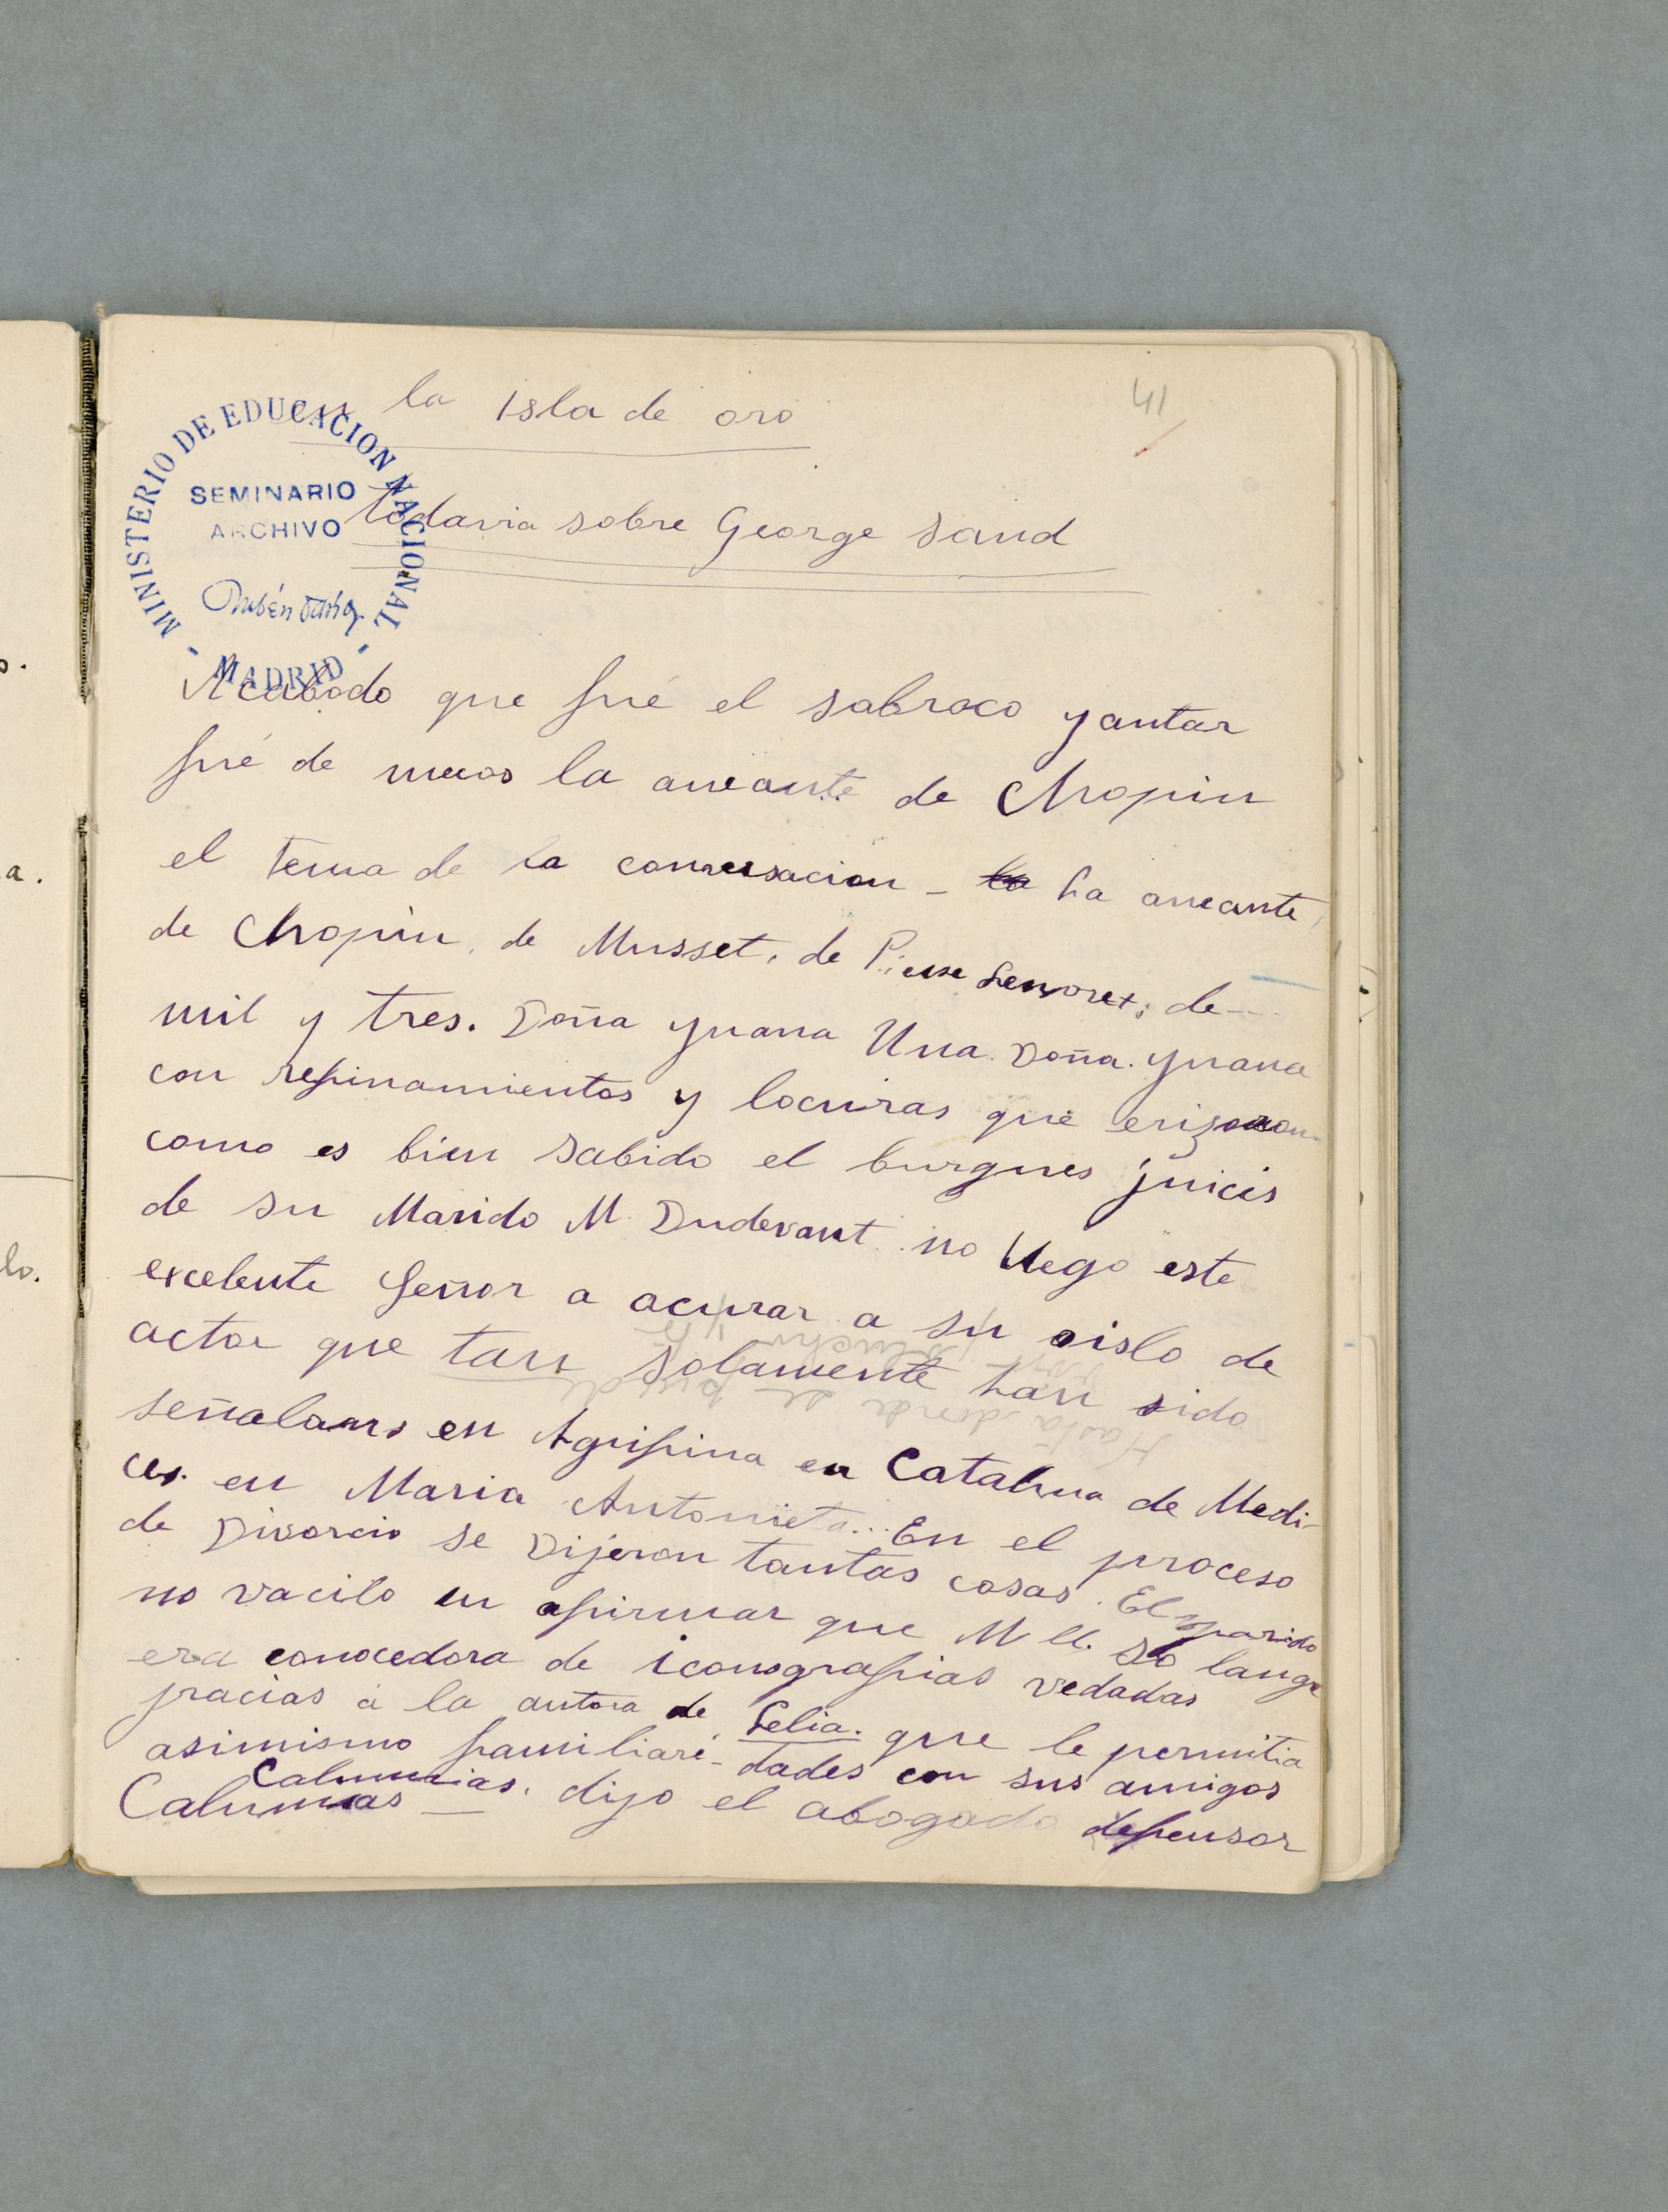 en la isla de oro
41
MINISTERIO DE EDUCACION NACIONAL
SEMINARIO
ARCHIVO
Rubén Darío
- MADRID -
todavia sobre George Sand
Acabado que fué el sabroco yantar
fué de nuevo la amante de Chopin
el tema de la conversacion - La amante
de Chopin, de Musset, de Pierre Lerroret; de ...
mil y tres. Doña Juana Una. Doña. Juana
con refinamientos y locuras que erizaron
como es bien sabido el burgues juicio
de su Marido M. Dudevant. no llego este
excelente Señor a acusar a su oislo de
actos que tan solamente han sido
señalados en Agripina en Catalina de Medi-
ces. en Maria Antonieta... En el proceso
de Divorcio se Dijeron tantas cosas. El marido
no vacilo en afirmar que Mll. So lange
era conocedora de iconografias vedadas
gracias á la autora de Lelia. que le permitia
asimismo familiari-dades con sus amigos
Calumnias.
Calumnias — dijo el abogado defensor
s.
a.
lo.